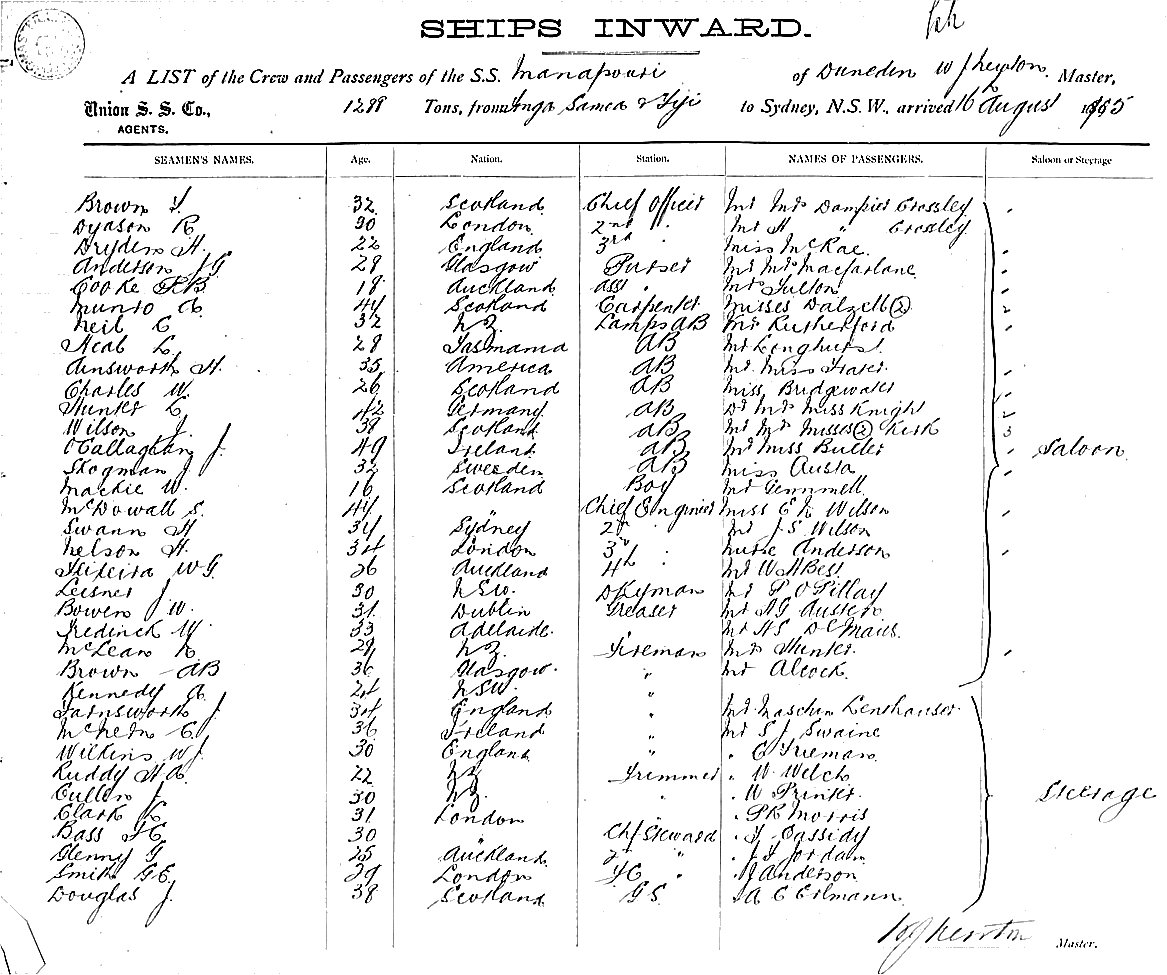 SHIPS INWARD.
A LIST of the Crew and Passengers of the S.S. Manapouri of Dunedin W J Newton Master,
Union S. S. Co., 1288 Tons, from Tonga Samoa & Fiji to Sydney, N.S.W., arrived 16 August 1895
AGENTS.
SEAMEN'S NAMES. Age. Nation. Station. NAMES OF PASSENGERS. Saloon or Steerage
Brown 32 Scotland Chief Officer Mr Mrs Dampier Crossley
Dyason R 30 London 2nd " Mr A " Crossley
Dryden H. 22 England 3rd " Miss McRae
Anderson 28 Glasgow Purser Mr Mrs Macfarlane
Cooke 18 Auckland asst " Mrs Fulton
Munro A 44 Scotland Carpenter Misses Dalzell (2) 2
Neil C 32 N.Z. Lamps AB Mr Rutherford
Neal L 28 Tasmania AB Mr Longhurst
Ainsworth H. 35 America AB Mr Miss Fraser
Charles W. 26 Scotland AB Miss Bridgewater
Hunter L 42 Germany AB Dr Mrs Miss Knight 2
Wilson J. 38 Scotland AB Mr Mrs Misses (2) Kirk 3
O'Callaghan J. 49 Ireland AB Mr Miss Butler Saloon
Skogman J 32 Sweden AB Miss Austa
Mackie W. 16 Scotland Boy Mr Gemmell
McDowall S. 44 " Chief Engineer Miss E L Wilson
Swann H 34 Sydney 2nd " Mr J S Wilson
Nelson H. 34 London 3rd " Nurse Anderson
Teixeira W G 26 Auckland 4th " Mr W H Best
Leisner J 30 N.S.W. Dkyman Mr P O Pillay
Bowen W. 31 Dublin Greaser Mr A G Austen
Frederick W. 33 Adelaide Mr H S
McLean R 29 N.Z. Fireman Mrs Hunter
Brown AB 36 Glasgow " Mr Alcock
Kennedy A 24 N.S.W. "
Farnsworth J. 34 England " Mr Lenthauser
36 Ireland " Mr S J Swaine
Wilkins W J. 30 England " " C Freeman
Ruddy H A. 22 N.Z. Trimmer " W Welch
Cullen J 30 N.Z. " " W Printer Steerage
Clark L 31 London " " P R Morris
Bass 30 " Chf Steward " J Cassidy
Glenny G 25 Auckland 2nd " " J Jordan
Smith G E. 29 London " J Anderson
Douglas J. 38 Scotland G S. " A C Erlmann
W J Newton Master.